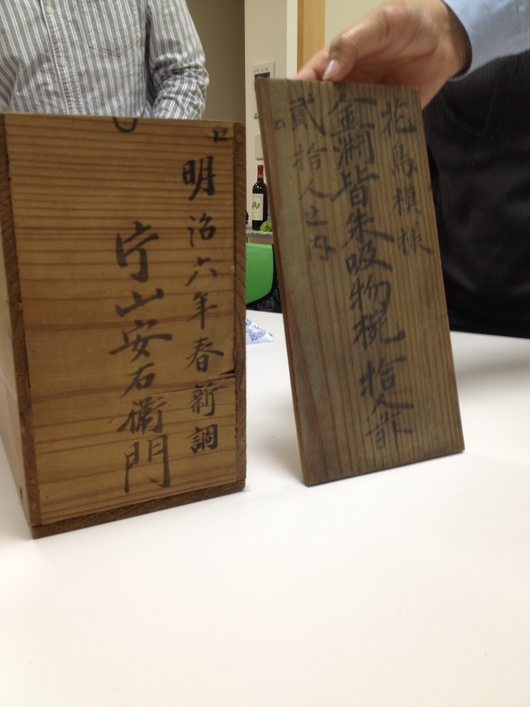 明治六年春新調
片山安右衛門
花鳥模様
金渕皆朱吸物椀 拾人前
貳拾人之内